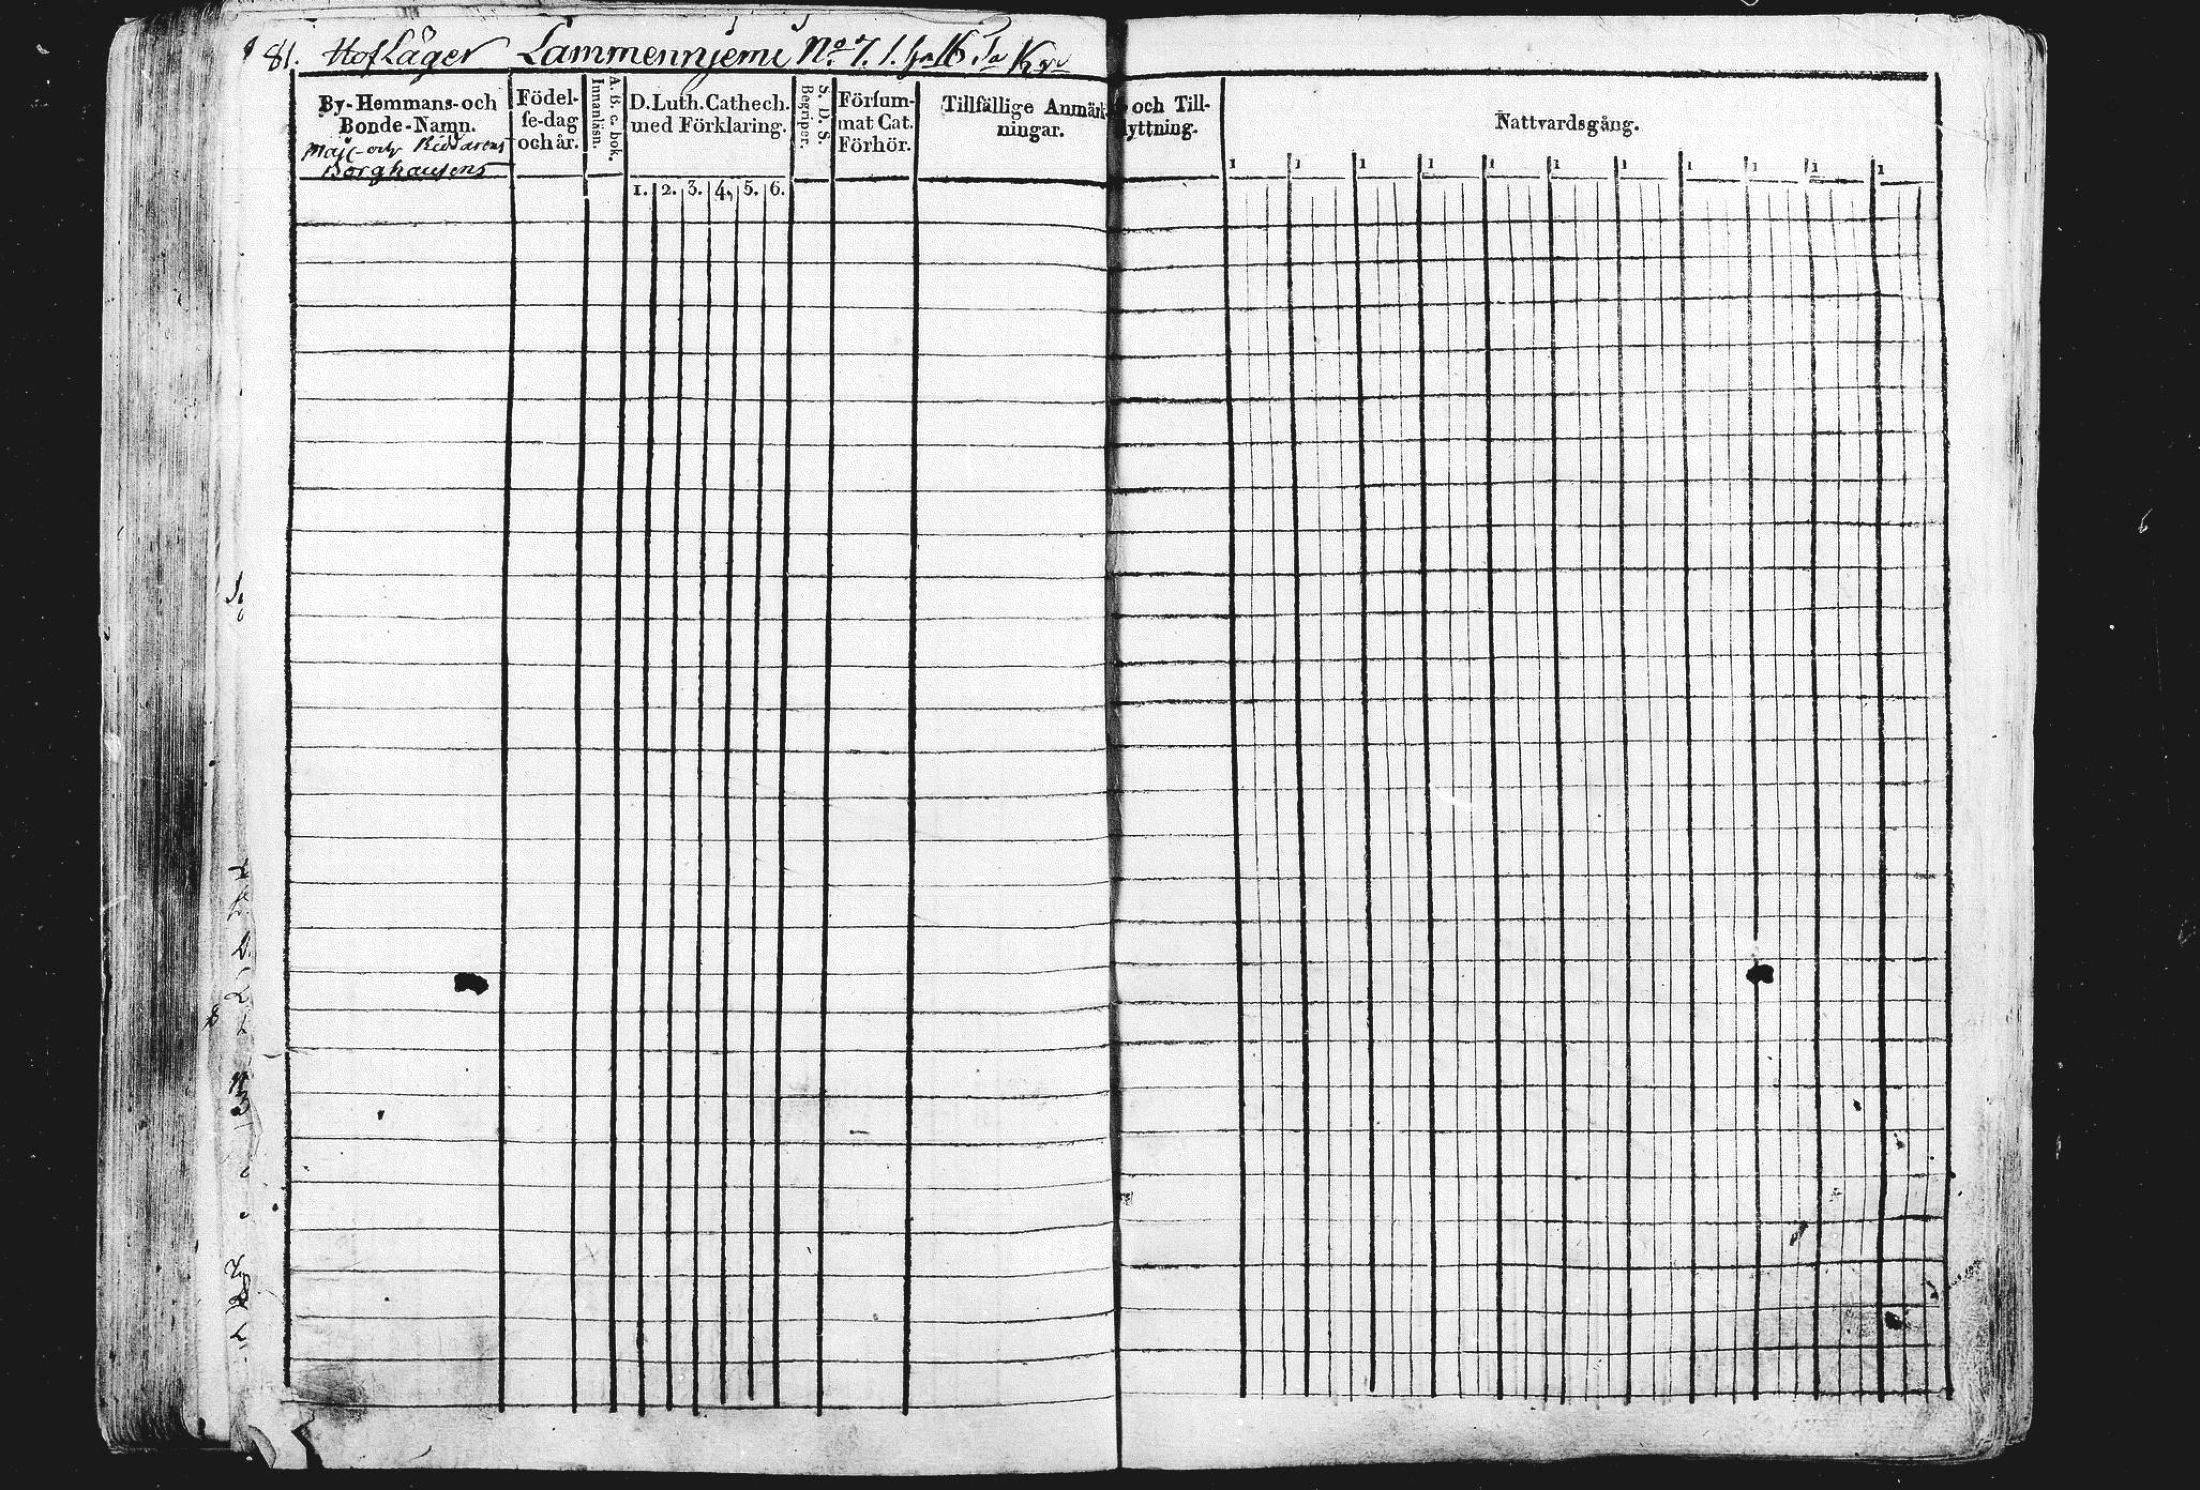 81. Hofläger Lammenniemi No. 7. 1.
By-Hemmans-och
Bonde-Namn.
Maj:- och Riddarens
Borghausens
Födel-
se-dag
och år.
A. B. C. bok.
Innanläsn.
D. Luth. Cathech.
med Förklaring.
1. 2. 3. 4. 5. 6.
S. D. S.
Begriper.
Försum-
mat Cat.
Förhör.
Tillfällige Anmärk-
ningar.
och Till-
lyttning.
Nattvardsgång.
1 1 1 1 1 1 1 1 1 1 1